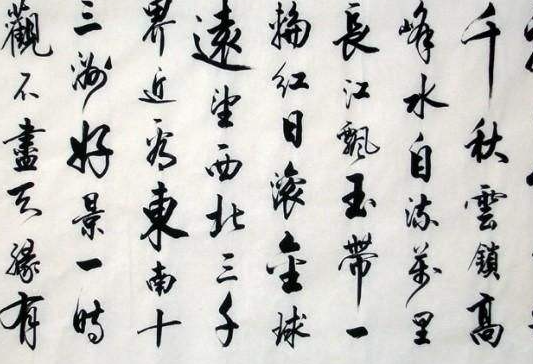 千秋雲鎖高
峰水自流萬里
長江飄玉帶一
輪紅日滾金球
遠望西北三千
界近看東南十
三洲好景一時
觀不盡天緣有